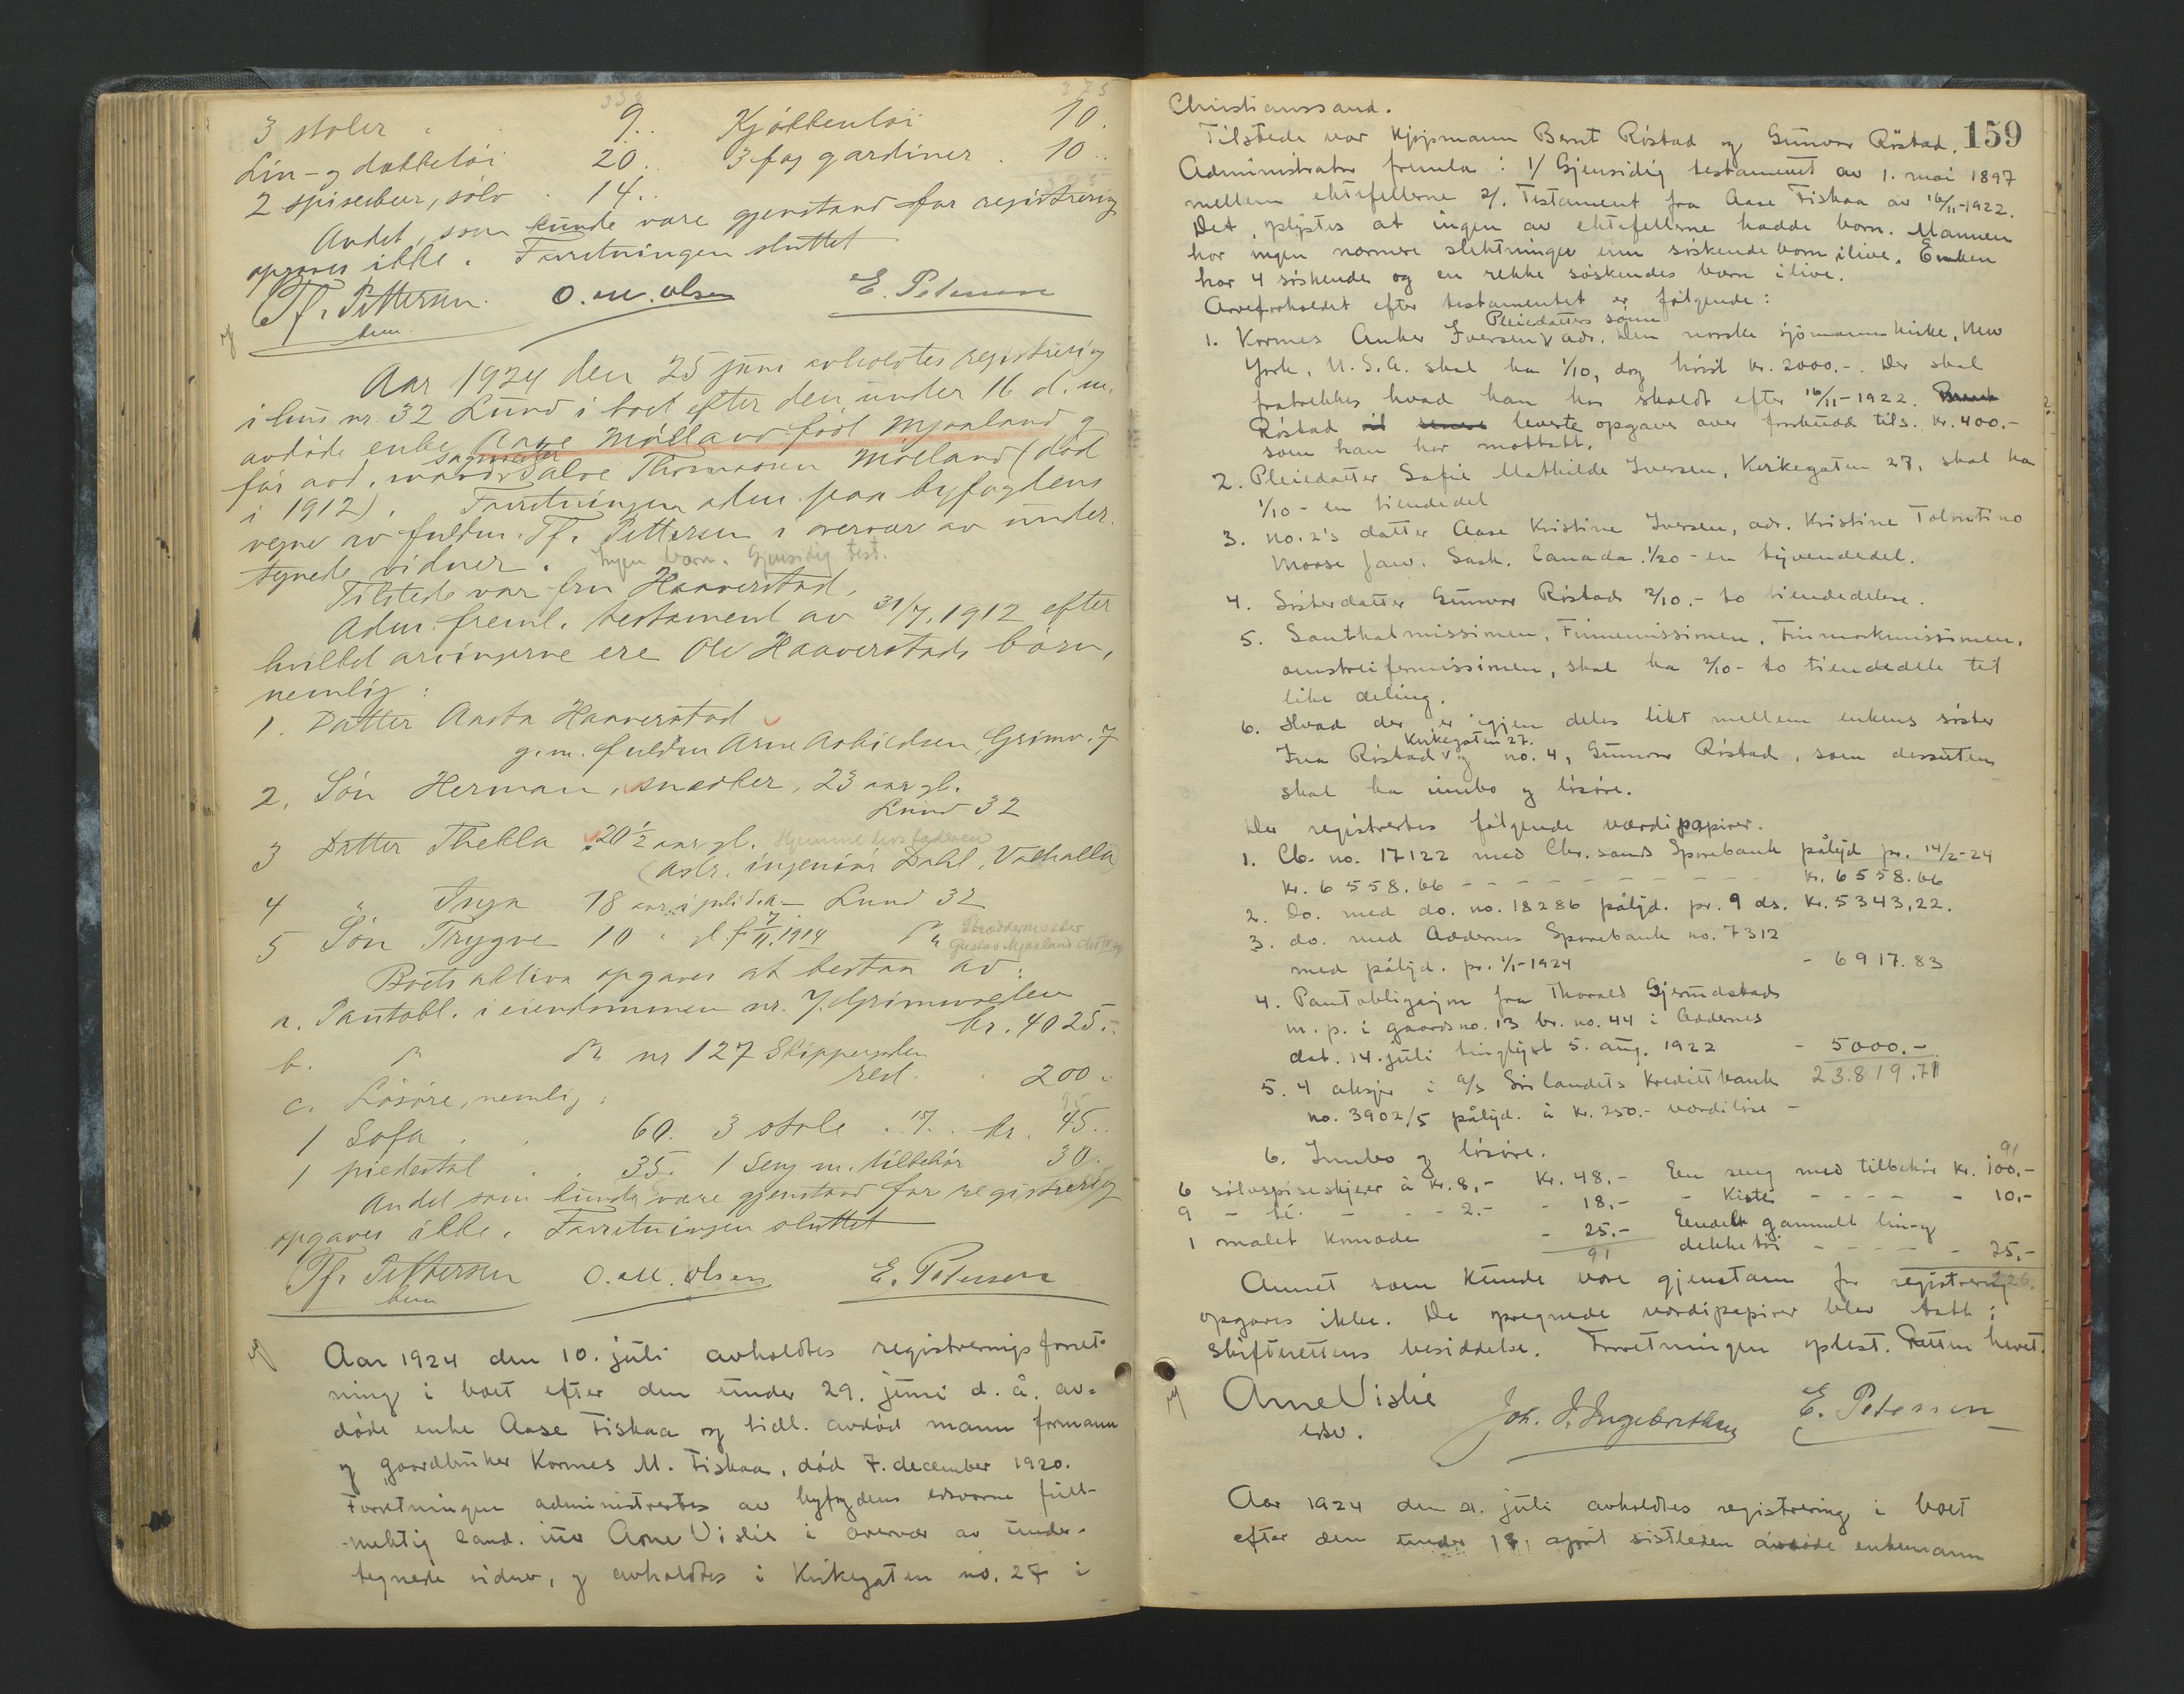 3 stoler . . 9.. Kjøkkentøi 10.
Lin- og dækketøi 20.. 3 fag gardiner . 10..
2 spiseskeer, sølv . 14..
Andet, som kunde være gjenstand for registrering
opgaves ikke. Forretningen sluttet
Tf. Pettersen O. M. Olsen E. Petersen
bem.
Aar 1924 den 25 juni avholdtes registrering
i hus nr. 32 Lund i boet efter den under 16 d. m.
avdøde enke Aase Mølland født Mjaaland og
før avd. mand, Salve Thomassen Mølland (død
i 1912). Forretningen adm. paa byfogdens
vegne av fuldm. Tf. Pettersen i overvær av under-
tegnede vidner. Ingen børn. Gjensidig test.
Tilstede var fru Haaverstad.
Adm. freml. testament av 31/7. 1912 efter
hvilket arvingerne ere Ole Haaverstads børn,
nemlig:
1. Datter Aasta Haaverstad
g. m. fuldm Arne Askildsen, Grimv. 7
2. Søn Herman, snedker, 23 aar gl.
Lund 32
3 Datter Thekla 20 1/2 aar gl. Hjemme hos faderen
(adr. ingeniør Dahl, Valhalla)
4 " Inga 18 aar i juli d.a. - Lund 32
5 Søn Trygve 10 " gl f. 7/11. 1914
Skræddermester
Gustav Mjaaland
Boets aktiva opgaves at bestaa av:
a. Pantobl. i eiendommen nr. 7 Grimsveien
kr. 4025..
b. " nr 127 Skippergaten
rest. . 200..
c. Løsøre, nemlig:
95
1 Sofa . . 60. 3 stole . 15. . kr. 45..
1 piedestal . . 35. 1 Seng m. tilbehør 30.
Andet som kunde være gjenstand for registrering
opgaves ikke. Forretningen sluttet
Tf. Pettersen O. M. Olsen E. Petersen
bem
Aar 1924 den 10. juli avholdtes registreringsforret-
ning i boet efter den under 29. juni d. å. av-
døde enke Aase Fiskaa og tidl. avdød mann formann
og gaardbruker Kormes M. Fiskaa, død 7. december 1920.
Forretningen administrertes av byfogdens edsvorne full-
mektig cand. jur Arne Vislie i overvær av under-
tegnede vidner, og avholdtes i Kirkegaten no. 27 i
159
Christianssand.
Tilstede var Kjøpmann Bernt Røstad og Gunvor Røstad.
Administrator fremla: 1/ Gjensidig testament av 1. mai 1897
mellem ektefellerne 2/. Testament fra Aase Fiskaa av 16/11-1922.
Det oplystes at ingen av ektefellerne hadde barn. Mannen
har ingen nærmere slektninger enn søskendebarn ilive. Enken
har 4 søskende og en rekke søskendes barn ilive.
Arveforholdet efter testamentet er følgende:
Pleiedatters sønn
1. Kormes Anker Iversen, adr. Den norske sjømannskirke, New
York, U.S.A. skal ha 1/10, dog høist kr. 2000.-. Der skal
fratrekkes hvad han har skoldt efter 16/11-1922.
Røstad leverte opgave over forskudd tils. kr. 400.-
som han har mottatt.
2. Pleiedatter Sofie Mathilde Iversen, Kirkegaten 27, skal ha
1/10 - en tiendedel
3. no. 2's datter Aase Kristine Iversen, adr. Kristine Tolentino
Moose Jaw. Sask. Canada. 1/20 - en tyvendedel.
4. Søsterdatter Gunvor Røstad 2/10.- to tiendedeler.
5. Santhalmissionen, Finnemissionen, Finmarkmissionen,
omstreifermissionen, skal ha 2/10- to tiendedele til
like deling.
6. Hvad der er igjen deles likt mellem enkens søster
Kirkegaten 27.
Ina Røstad og no. 4, Gunvor Røstad, som dessuten
skal ha innbo og løsøre.
Der registrertes følgende værdipapirer.
1. Cb. no. 17122 med Chr.sands Sparebank pålyd pr. 14/2-24
kr. 6558.66 - - - - - - - - kr. 6558.66
2. Do. med do. no. 18286 pålyd. pr. 9 ds. kr. 5343,22.
3. do. med Oddernes Sparebank no. 7312
med pålyd. pr. 1/1-1924 - 6917.83
4. Pantobligasjon fra Thorald Gjerudstads
m. p. i gaardsno. 13 br. no. 44 i Oddernes
dat. 14. juli tinglyst 5. aug. 1922 - 5000.-
5. 4 aksjer i A/S Sørlandets Kredittbank 23.819.71
no. 3902/5 pålyd. à kr. 250.- værdiløse -
6. Innbo og løsøre. 91
6 sølvspiseskjeer à kr. 8,- kr. 48,- Een seng med tilbehør kr. 100,-
9 - té - - - 2.- - 18,- - Kiste - - - - - 10,-
1 malet komode - 25.- Eendel gammelt lin- og
91 dekketøi - - - - - 25,-
Annet som kunde være gjenstann for registrering 226.
opgaves ikke. De opregnede værdipapirer blev tatt i
skifterettens besiddelse. Forretningen oplest. Retten hevet.
Arne Vislie Joh. J. Ingebretsen E. Petersen
edsv.
Aar 1924 den 21. juli avholdtes registrering i boet
efter den under 18, april sistleden avdøde enkemann